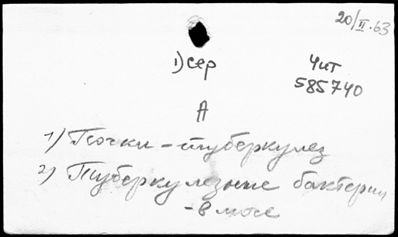 20/II.63
1) сер
Чит
585740
А
1) Почки - туберкулез
2) Туберкулезные бактерии
- в моче